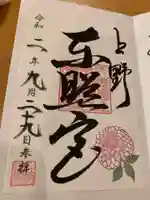 上野
東照宮
令和二年九月二十九日参拝